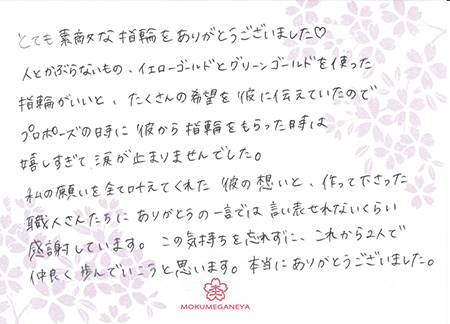 とても素敵な指輪をありがとうございました♡
人とかぶらないもの、イエローゴールドとグリーンゴールドを使った
指輪がいいと、たくさんの希望を彼に伝えていたので
プロポーズの時に彼から指輪をもらった時は
嬉しすぎて涙が止まりませんでした。
私の願いを全て叶えてくれた彼の想いと、作って下さった
職人さんたちにありがとうの一言では言い表せれないくらい
感謝しています。この気持ちを忘れずに、これから2人で
仲良く歩んでいこうと思います。本当にありがとうございました。
MOKUMEGANEYA